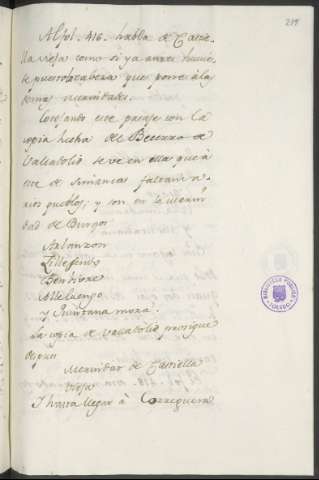 219
Al fol. 416. habla de Caste-
lla vieja como si ya antes huvie-
se puesto la cabeza que pone á las
demas merindades.
Cotejando este pasaje con la
copia hecha del Becerro de
Valladolid se ve en ella que á
este de Simancas faltan va-
rios pueblos; y son en la merin-
dad de Burgos
Arlanzon
Villafenio
Bentivre
Melluengo
y Quintana mora.
La copia de Valladolid prosigue
despues
Merindat de Castiella
vieja
I hasta llegar à
BIBLIOTECA PUBLICA
TOLEDO